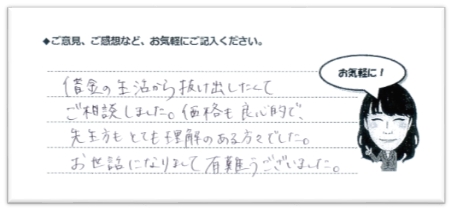 ◆ご意見、ご感想など、お気軽にご記入ください。
お気軽に！
借金の生活から抜け出したくて
ご相談しました。価格も良心的で、
先生方もとても理解のある方々でした。
お世話になりまして有難うございました。